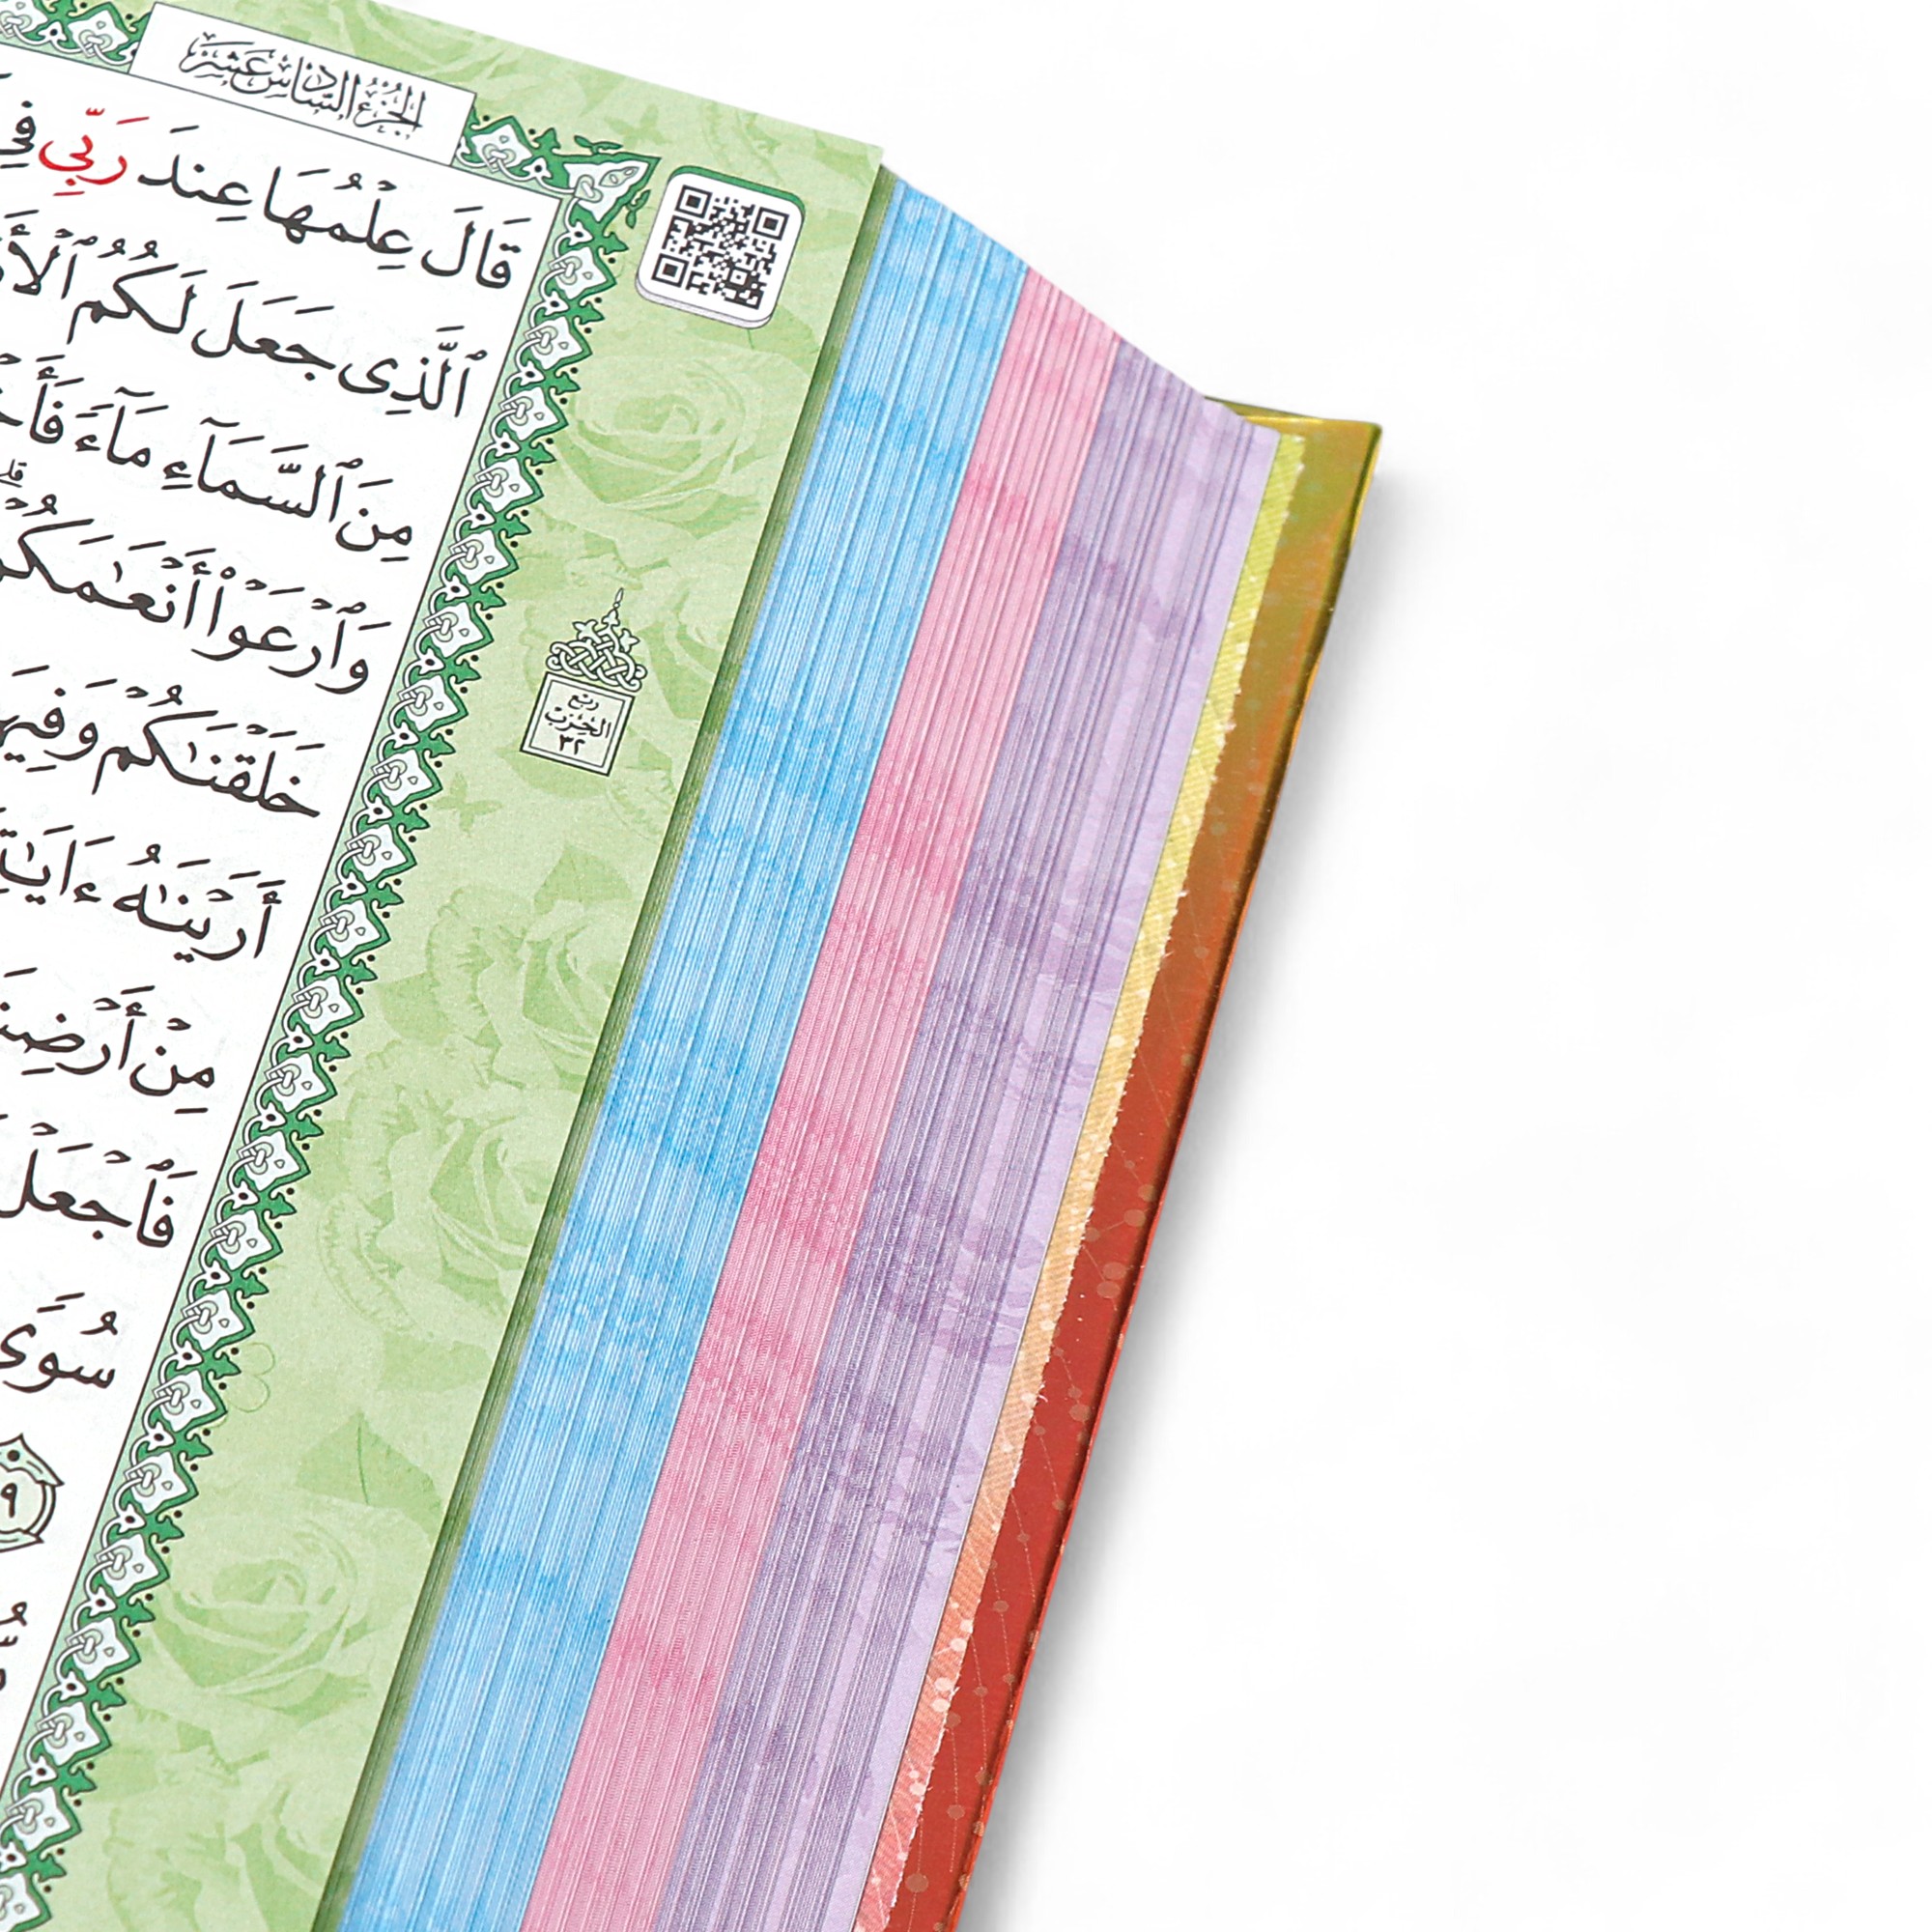 الجزء السادس عشر
قَالَ عِلْمُهَا عِندَ رَبِّي فِي
ٱلَّذِى جَعَلَ لَكُمُ ٱلْأَ
مِنَ ٱلسَّمَآءِ مَآءً فَأَخْ
وَٱرْعَوْا۟ أَنْعَٰمَكُمْ
خَلَقْنَٰكُمْ وَفِيهَ
أَرَيْنَٰهُ ءَايَٰتِ
مِنْ أَرْضِنَ
فَٱجْعَلْ
سُوًى
ربع
الحزب
٣٢